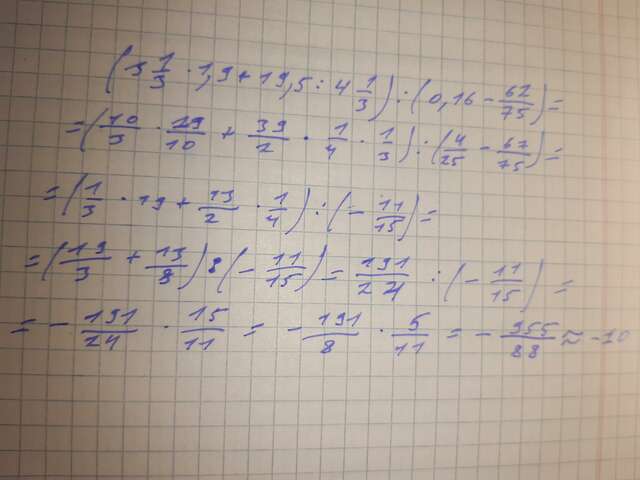 (3 1/3 · 1,9 + 19,5 : 4 1/3) : (0,16 - 62/75) =
= (10/3 · 19/10 + 39/2 · 1/4 · 1/3) : (4/25 - 67/75) =
= (1/3 · 19 + 13/2 · 1/4) : (- 11/15) =
= (19/3 + 13/8) : (- 11/15) = 191/24 : (- 11/15) =
= - 191/24 · 15/11 = - 191/8 · 5/11 = - 955/88 ≈ -10